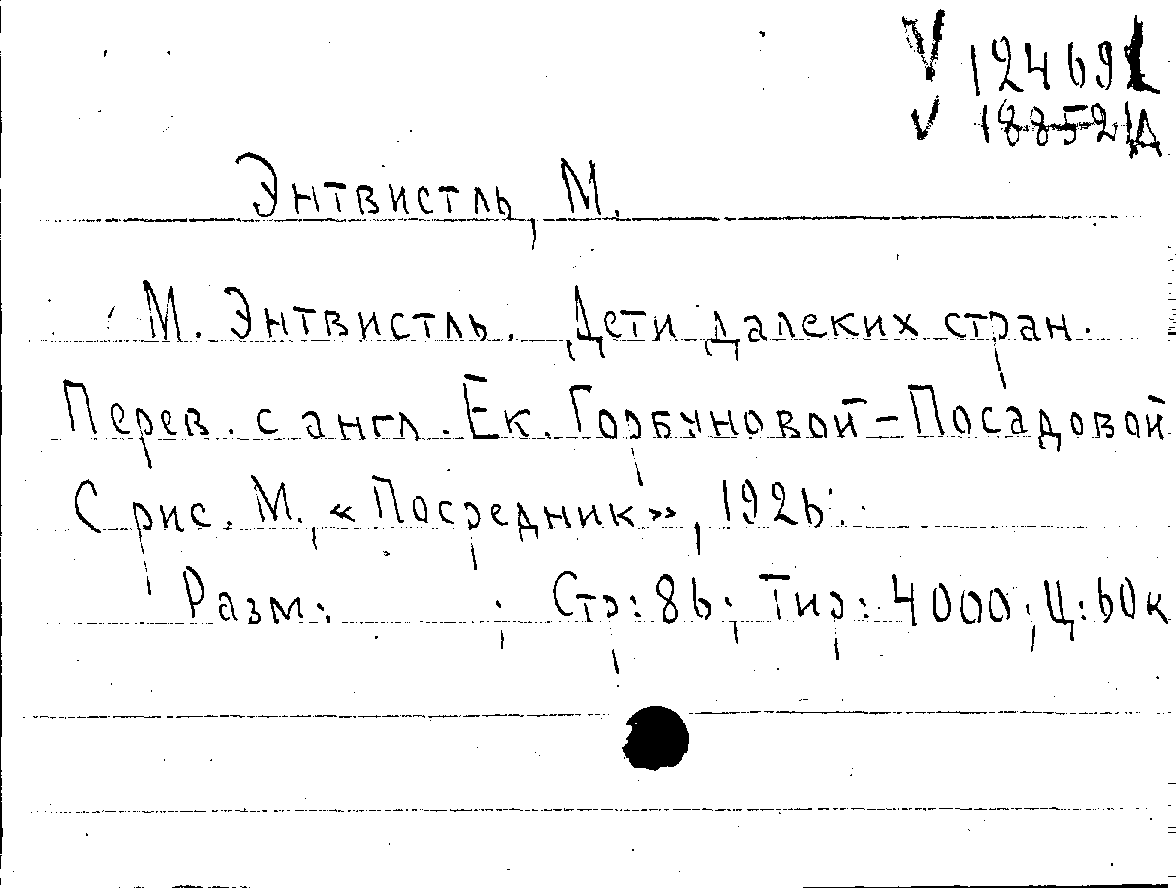 V 124691
V 188521А
Энтвистль, М.
М. Энтвистль. Дети далеких стран.
Перев. с англ. Ек. Горбуновой-Посадовой
С рис. М., «Посредник», 1926.
Разм: ; Стр: 86; Тир: 4000; Ц: 60к